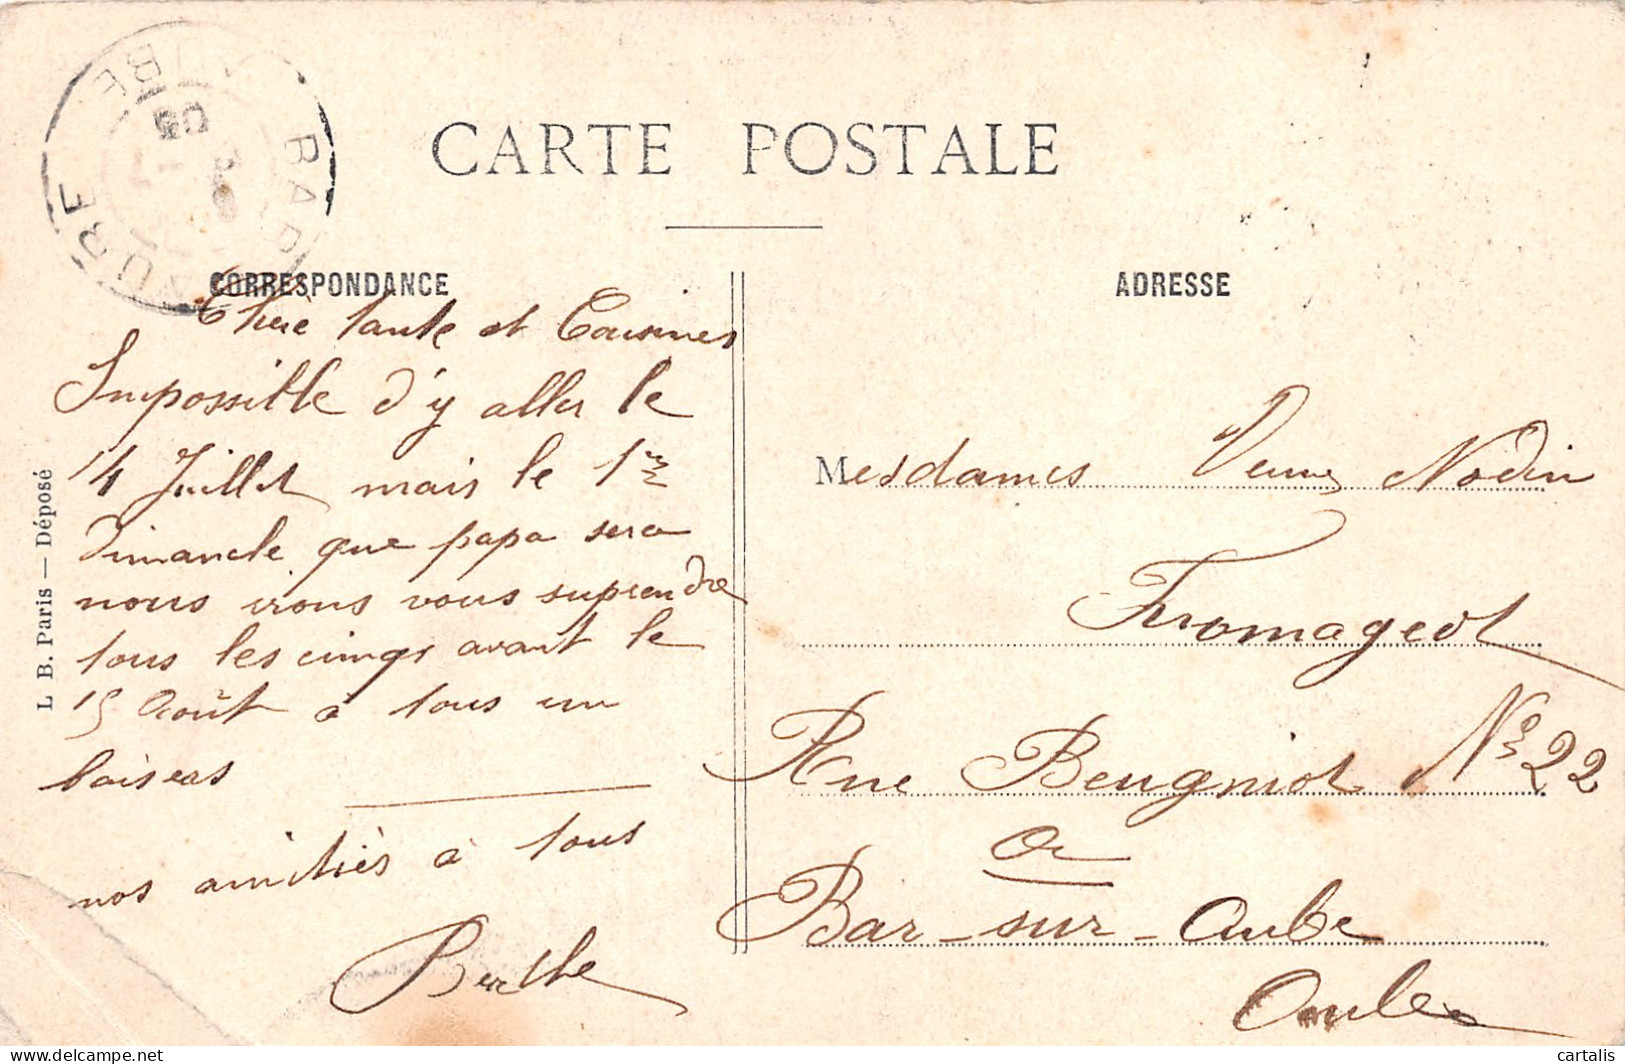 CARTE POSTALE
CORRESPONDANCE
ADRESSE
Chère tante et Cousines
Impossible d'y aller le
14 Juillet mais le 1er
dimanche que papa sera
nous irons vous suprendre
tous les cinqs avant le
15 Août à tous un
baisers
nos amitiés à tous
Berthe
L B. Paris — Déposé
Mesdames Veuves Nodin
Fromageot
Rue Beugniot No 22
à
Bar-sur-Aube
Aube
BAR
AUBE
cartalis
www.delcampe.net